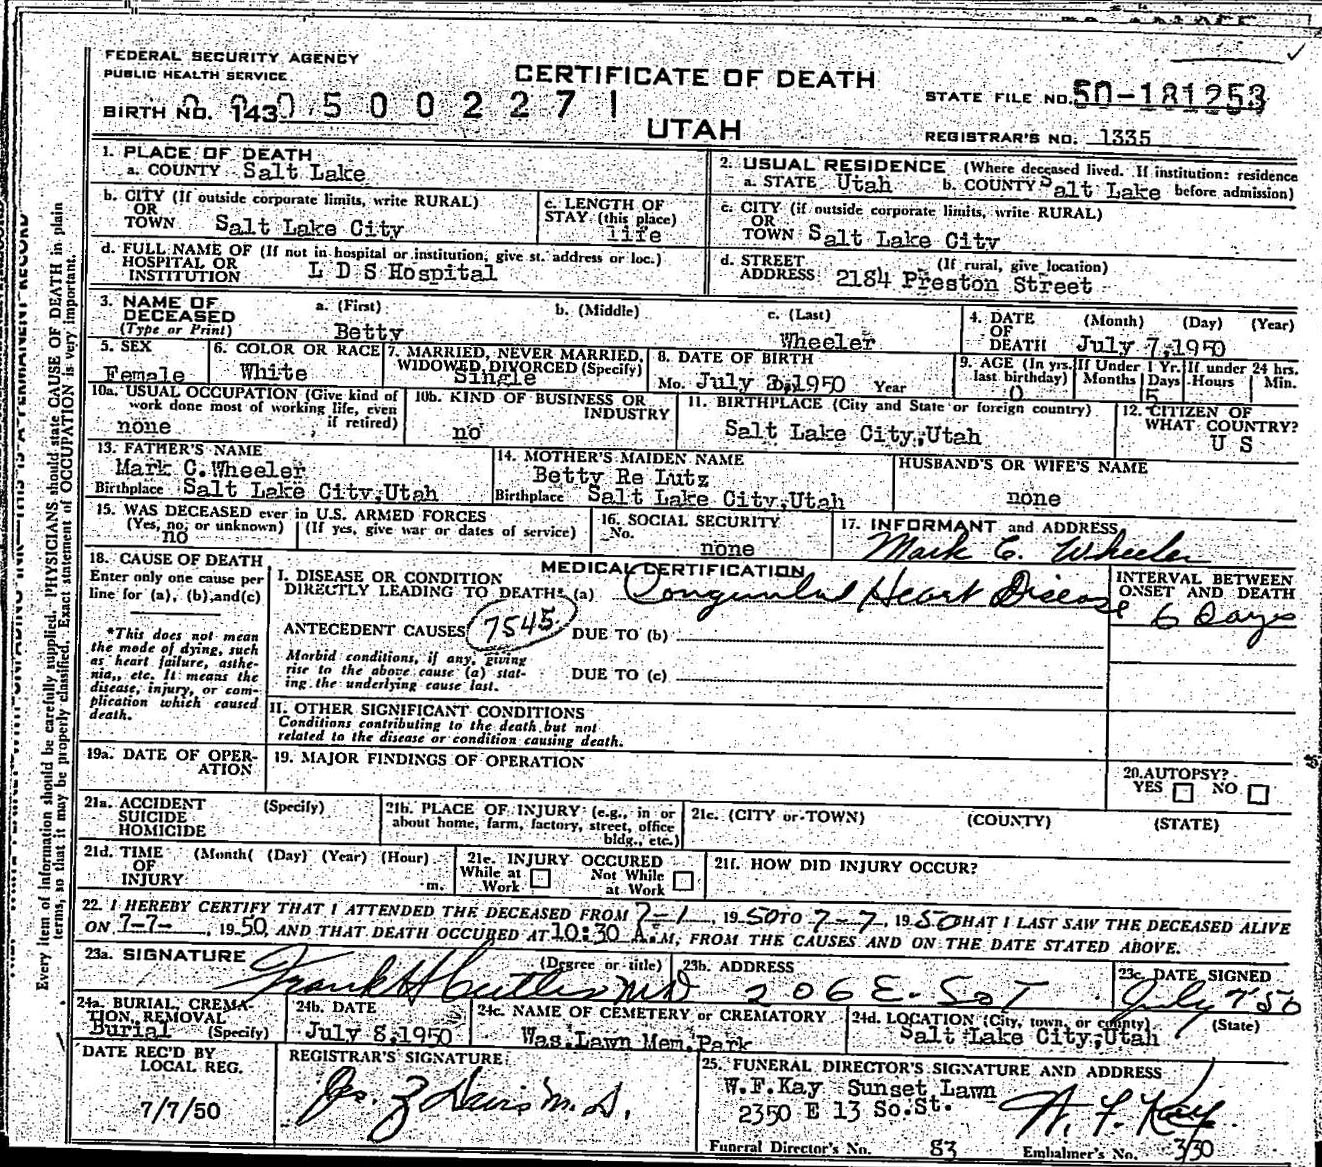 FEDERAL SECURITY AGENCY
PUBLIC HEALTH SERVICE
CERTIFICATE OF DEATH
STATE FILE NO. 50-181253
BIRTH NO. 143 0 5 0 0 2 2 7 1
UTAH
REGISTRAR'S NO. 1335
1. PLACE OF DEATH
a. COUNTY Salt Lake
2. USUAL RESIDENCE (Where deceased lived. If institution: residence
a. STATE Utah b. COUNTY Salt Lake before admission)
b. CITY (If outside corporate limits, write RURAL)
OR
TOWN Salt Lake City
c. LENGTH OF
STAY (this place)
life
c. CITY (if outside corporate limits, write RURAL)
OR
TOWN Salt Lake City
d. FULL NAME OF (If not in hospital or institution, give st. address or loc.)
HOSPITAL OR
INSTITUTION L D S Hospital
d. STREET (If rural, give location)
ADDRESS 2184 Preston Street
3. NAME OF
DECEASED
(Type or Print)
a. (First)
Betty
b. (Middle)
c. (Last)
Wheeler
4. DATE (Month) (Day) (Year)
OF
DEATH July 7,1950
5. SEX
Female
6. COLOR OR RACE
White
7. MARRIED, NEVER MARRIED,
WIDOWED, DIVORCED (Specify)
Single
8. DATE OF BIRTH
Mo. July ,1950 Year
9. AGE (In yrs. last birthday) 0
If Under 1 Yr. Months Days 5
If under 24 hrs. Hours Min.
10a. USUAL OCCUPATION (Give kind of
work done most of working life, even
if retired)
none
10b. KIND OF BUSINESS OR
INDUSTRY
no
11. BIRTHPLACE (City and State or foreign country)
Salt Lake City,Utah
12. CITIZEN OF
WHAT COUNTRY?
U S
13. FATHER'S NAME
Mark C.Wheeler
Birthplace Salt Lake City,Utah
14. MOTHER'S MAIDEN NAME
Betty Re Lutz
Birthplace Salt Lake City,Utah
HUSBAND'S OR WIFE'S NAME
none
15. WAS DECEASED ever in U.S. ARMED FORCES
(Yes, no, or unknown) (If yes, give war or dates of service)
no
16. SOCIAL SECURITY
No.
none
17. INFORMANT and ADDRESS
Mark C. Wheeler
18. CAUSE OF DEATH
Enter only one cause per
line for (a), (b), and(c)
*This does not mean
the mode of dying, such
as heart failure, asthe-
nia,, etc. It means the
disease, injury, or com-
plication which caused
death.
MEDICAL CERTIFICATION
I. DISEASE OR CONDITION
DIRECTLY LEADING TO DEATH* (a) Congenital Heart Disease
INTERVAL BETWEEN
ONSET AND DEATH
6 Days
ANTECEDENT CAUSES 7545 DUE TO (b)
Morbid conditions, if any, giving
rise to the above cause (a) stat-
ing the underlying cause last.
DUE TO (c)
II. OTHER SIGNIFICANT CONDITIONS
Conditions contributing to the death but not
related to the disease or condition causing death.
19a. DATE OF OPER-
ATION
19. MAJOR FINDINGS OF OPERATION
20. AUTOPSY?
YES NO
21a. ACCIDENT (Specify)
SUICIDE
HOMICIDE
21b. PLACE OF INJURY (e.g., in or
about home, farm, factory, street, office
bldg., etc.)
21c. (CITY or TOWN) (COUNTY) (STATE)
21d. TIME (Month( (Day) (Year) (Hour)
OF
INJURY m.
21e. INJURY OCCURED
While at Work Not While at Work
21f. HOW DID INJURY OCCUR?
22. I HEREBY CERTIFY THAT I ATTENDED THE DECEASED FROM 7-1, 1950 TO 7-7, 1950 HAT I LAST SAW THE DECEASED ALIVE
ON 7-7-, 1950 AND THAT DEATH OCCURED AT 10:30 A.M, FROM THE CAUSES AND ON THE DATE STATED ABOVE.
23a. SIGNATURE (Degree or title)
Frank H Cutler MD
23b. ADDRESS
206 E. So T
23c. DATE SIGNED
July 7 50
24a. BURIAL, CREMA-
TION, REMOVAL
Burial (Specify)
24b. DATE
July 8,1950
24c. NAME OF CEMETERY or CREMATORY
Was.Lawn Mem.Park
24d. LOCATION (City, town, or county) (State)
Salt Lake City,Utah
DATE REC'D BY
LOCAL REG.
7/7/50
REGISTRAR'S SIGNATURE
25. FUNERAL DIRECTOR'S SIGNATURE AND ADDRESS
W.F.Kay Sunset Lawn
2350 E 13 So.St.
W. F. Kay
Funeral Director's No. 83 Embalmer's No. 330
Every item of information should be carefully supplied. PHYSICIANS should state CAUSE OF DEATH in plain
terms, so that it may be properly classified. Exact statement of OCCUPATION is very important.